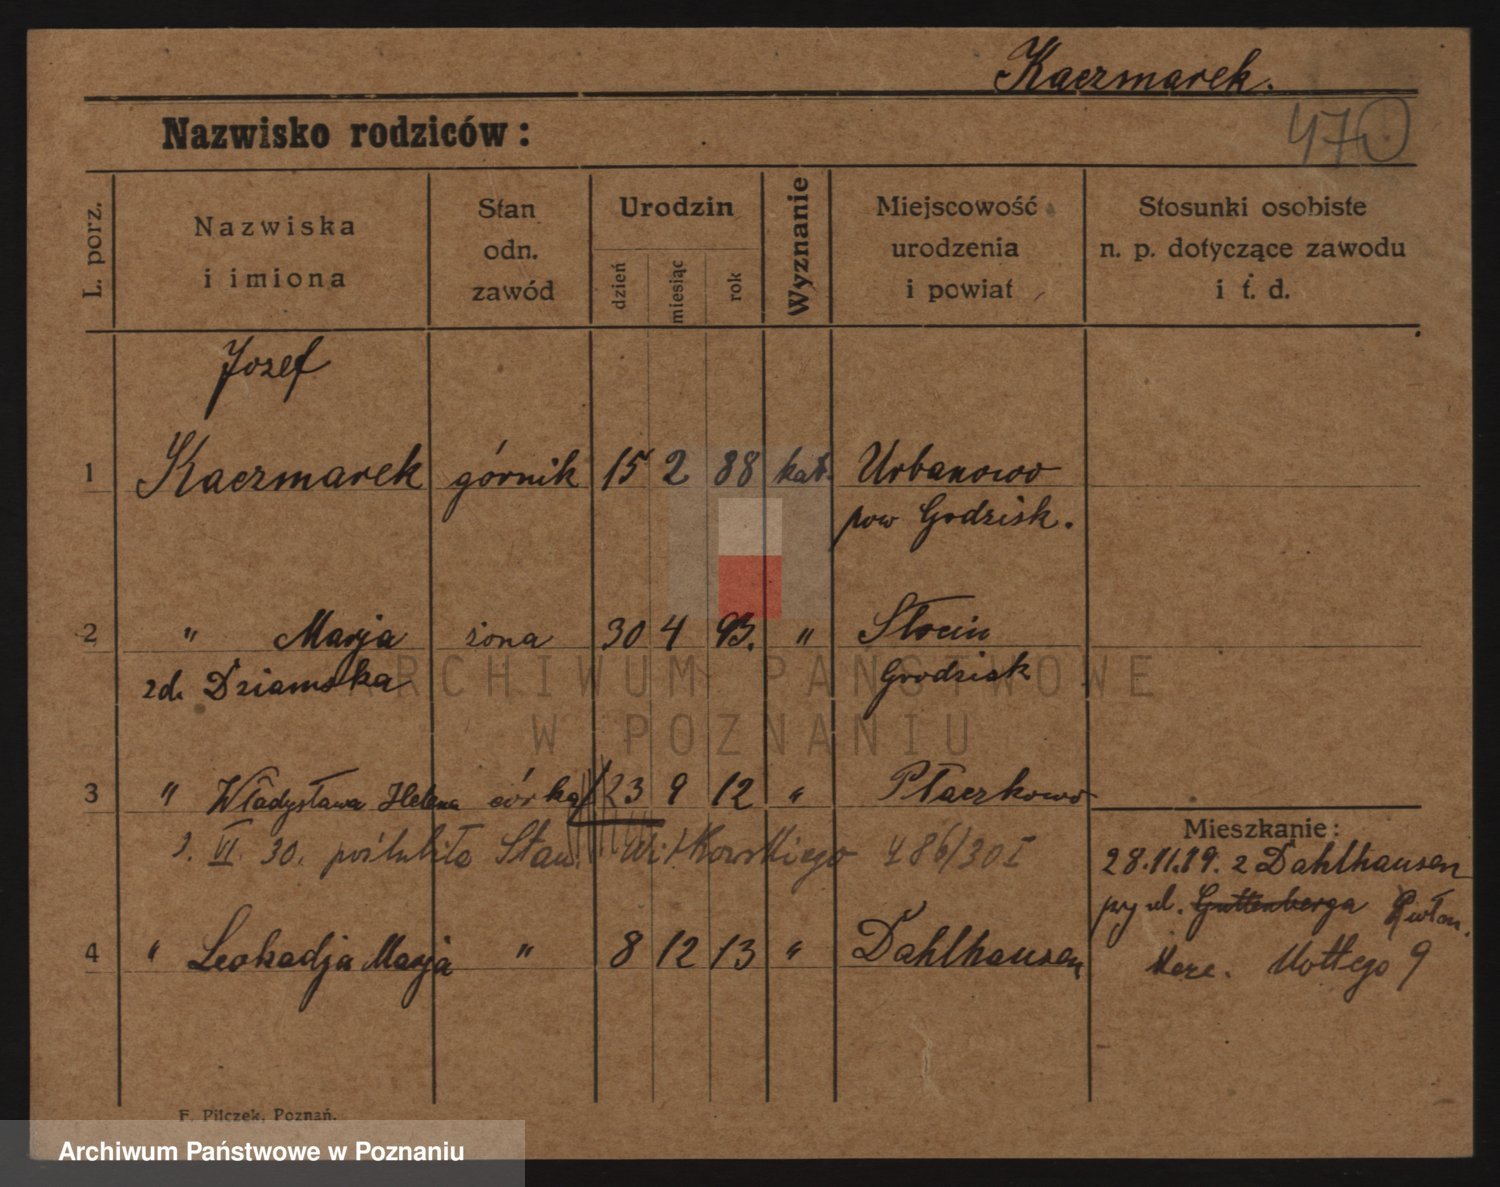 Kaczmarek.
470
Nazwisko rodziców:
L. porz.
Nazwiska
i imiona
Stan
odn.
zawód
Urodzin
dzień
miesiąc
rok
Wyznanie
Miejscowość
urodzenia
i powiat
Stosunki osobiste
n. p. dotyczące zawodu
i t. d.
Jozef
1 Kaczmarek górnik 15 2 88 kat. Urbanowo
pow Grodzisk.
2 " Marja żona 30 4 93. " Słocin
zd. Dziamska Grodzisk
ARCHIWUM PAŃSTWOWE
W POZNANIU
3 " Władysława Helena córka 23 9 12 " Ptaszkowo
VI. 30. poślubiła Stan. Witkowskiego 486/30 I
Mieszkanie:
28.11.19. z Dahlhausen
przy ul. Guttenberga
4 " Leokadja Marja " 8 12 13 " Dahlhausen
9
F. Pilczek, Poznań.
Archiwum Państwowe w Poznaniu